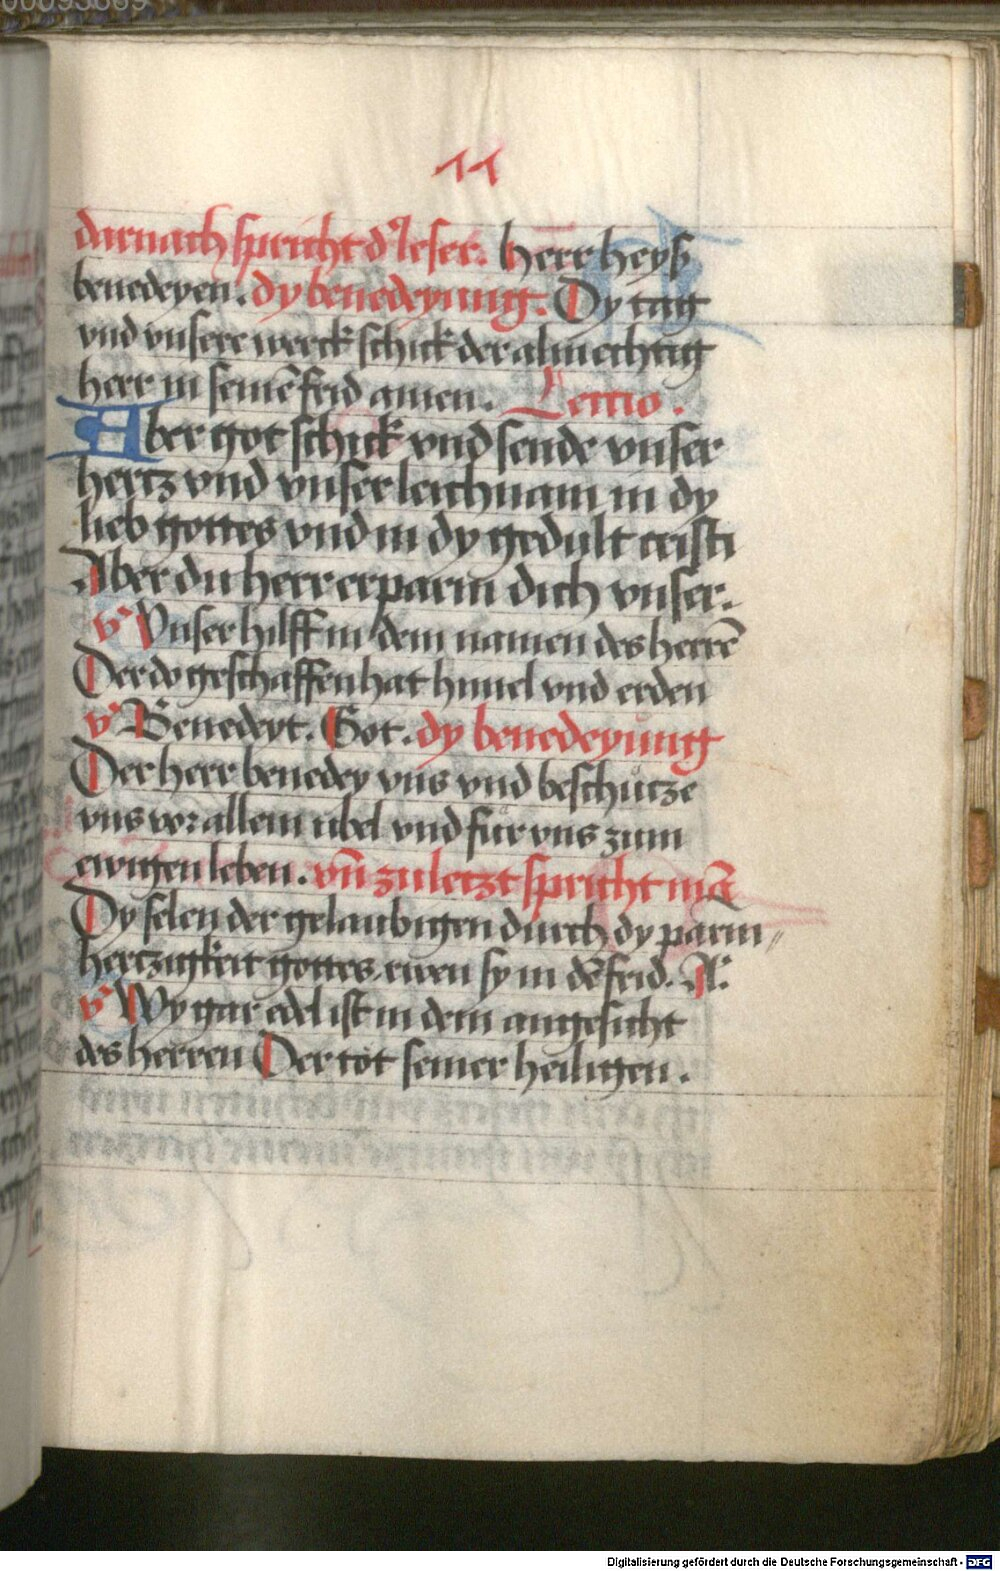 11
darnach spricht d'leser. herr heyß
benedeyen. dy benedeyung. Dy tag
vnd vnsere werck schick der almechtig
herr in seinē frid amen. Lectio.
Aber got schick vnd sende vnser
hertz vnd vnser leichnam in dy
lieb gottes vnd in dy gedult cristi
Aber du herr erparm dich vnser.
v' Vnser hilff in dem namen des herrē
Der do geschaffen hat himel vnd erden
v' Benedeyt. Got. dy benedeyung
Der herr benedey vns vnd beschütze
vns vor allem übel vnd für vns zum
ewigen leben. vn̄ zu letzt spricht mā
Dy selen der gelaubigen durch dy parm〃
hertzigkeit gottes ruen sy in dē frid. A.
v' Wy gar edel ist in dem angesicht
des herren Der tot seiner heiligen.
Digitalisierung gefördert durch die Deutsche Forschungsgemeinschaft - DFG